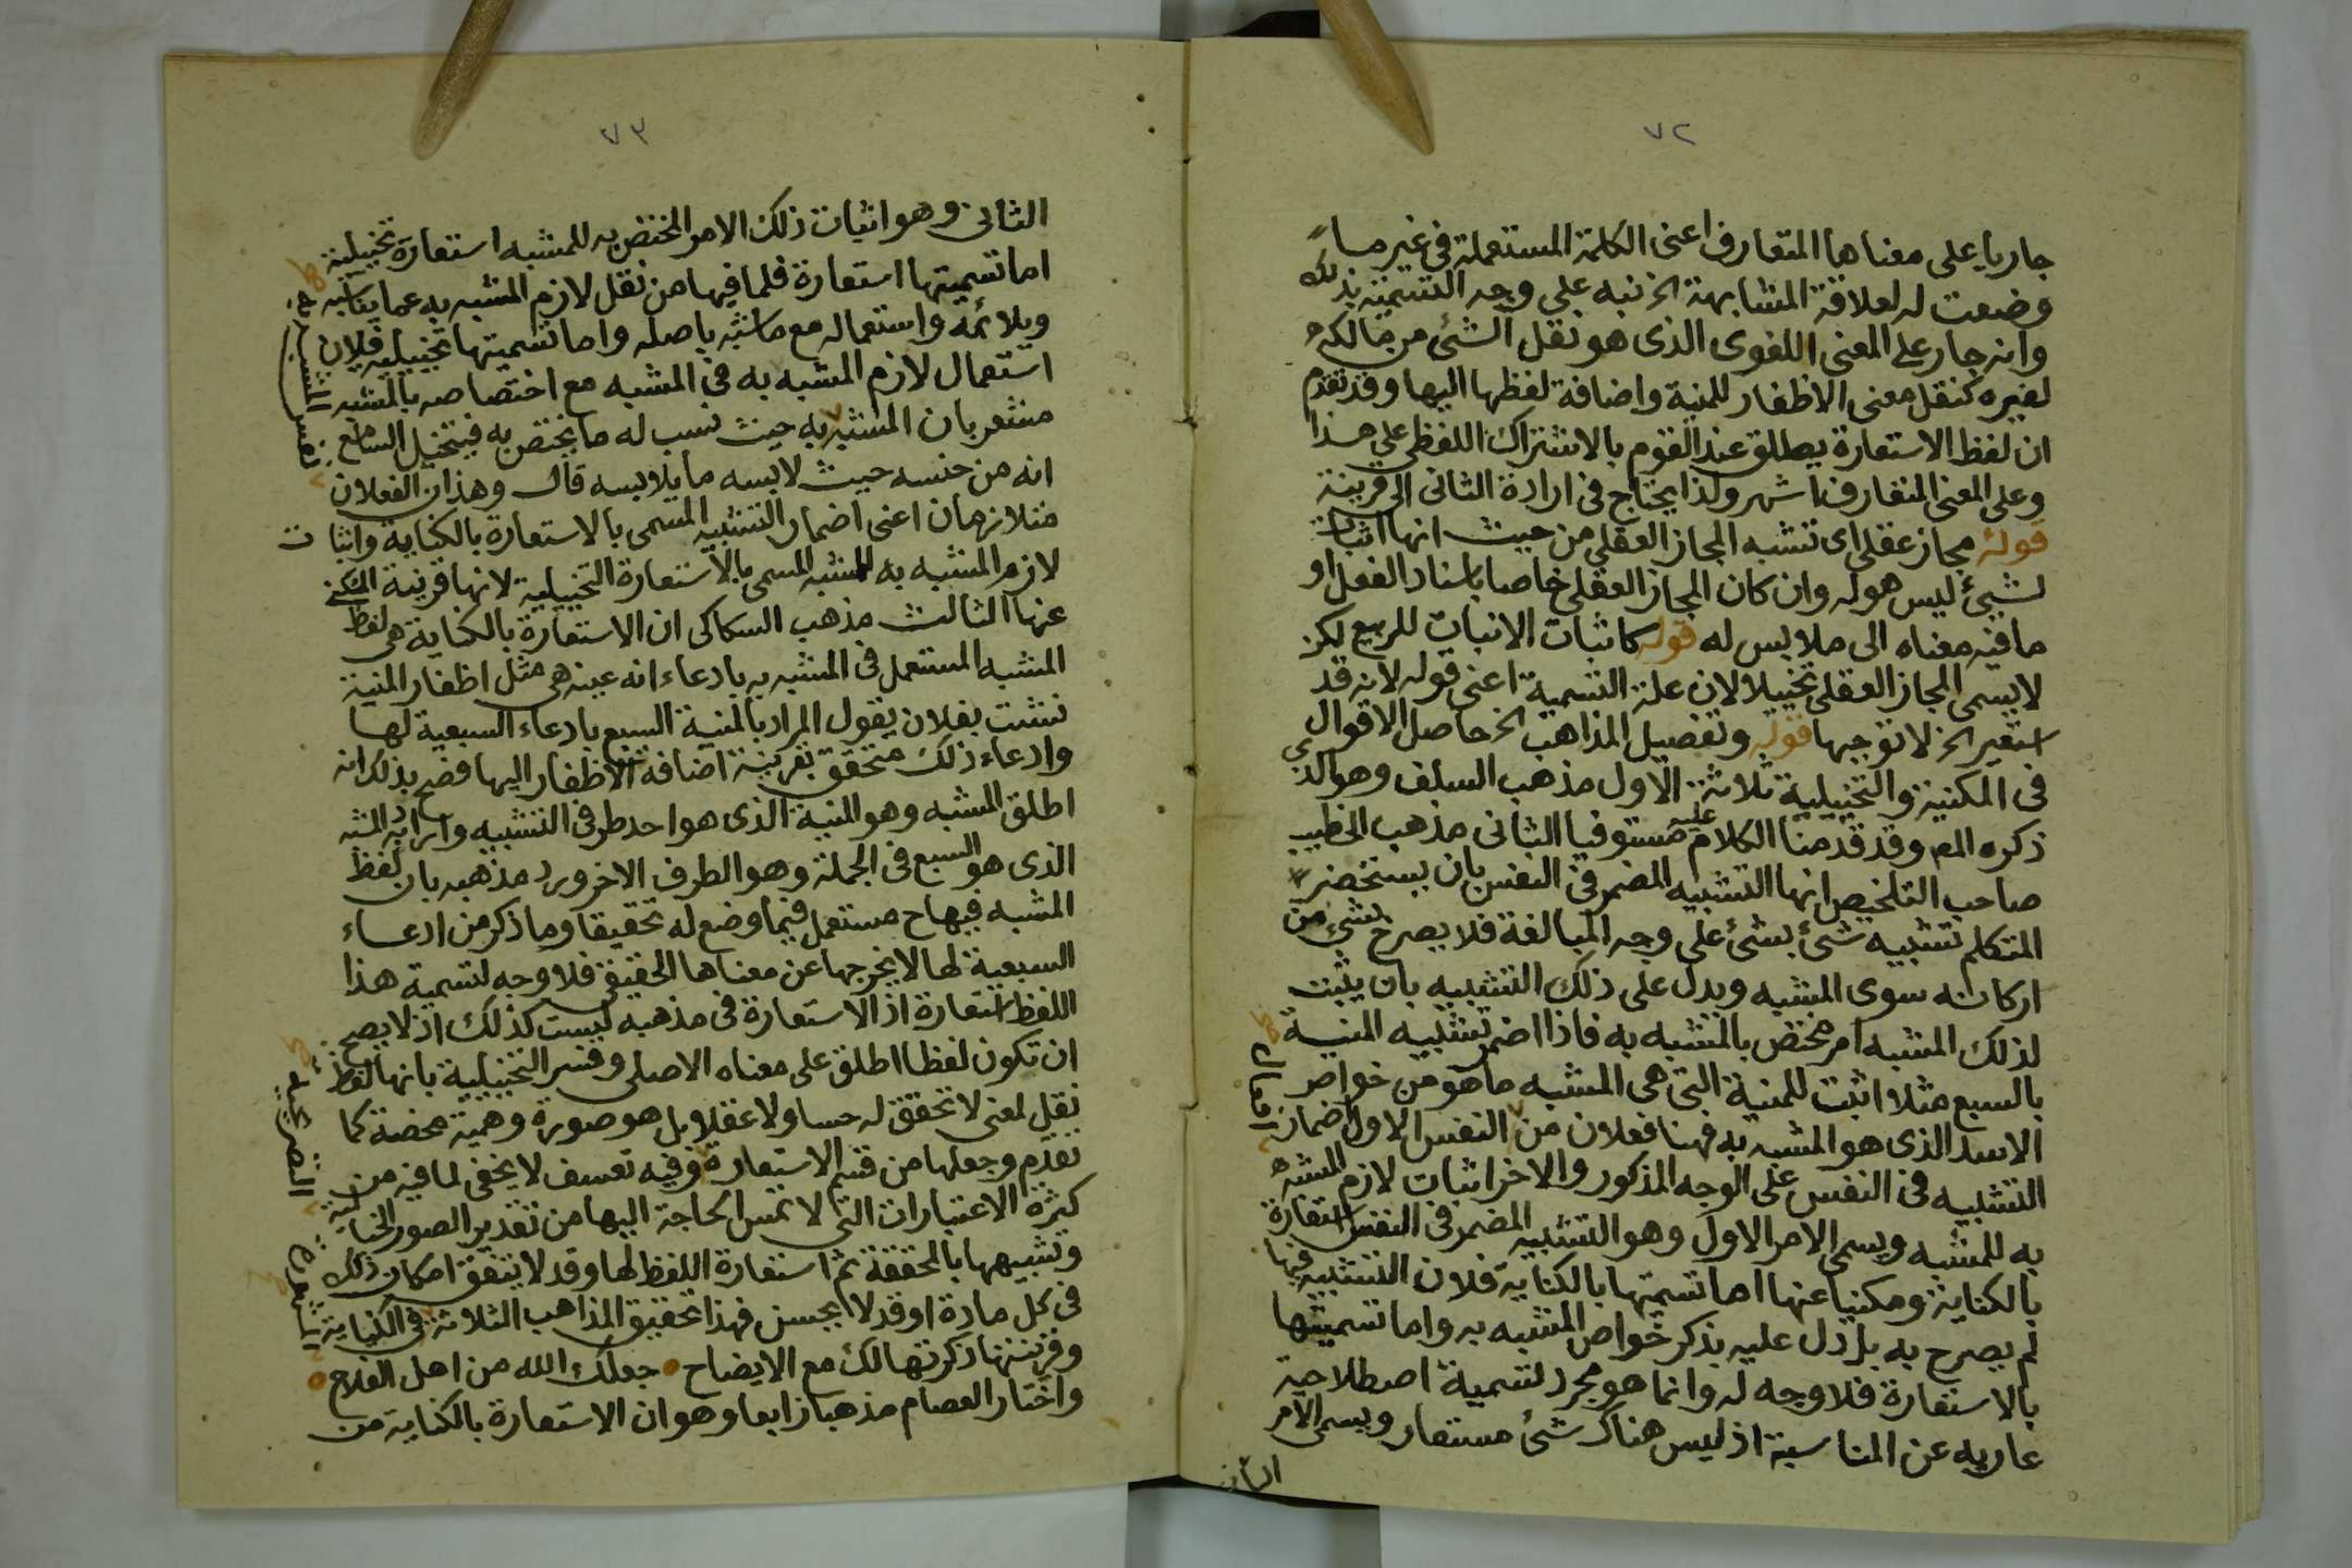 ٧٢
جاريا على معناها المتعارف اعنى الكلمة المستعملة فى غير ما
وضعت له لعلاقة المشابهة الخ نبه على وجه التسمية بذلك
وانه جار على المعنى اللغوى الذى هو نقل الشئ من مالكه
لغيره كنقل معنى الاظفار للمنية واضافة لفظها اليها وقد تقدم
ان لفظ الاستعارة يطلق عند القوم بالاشتراك اللفظى على هذا
وعلى المعنى المتعارف اشهر ولذا يحتاج فى ارادة الثانى الى قرينة
قوله مجاز عقلى اى تشبه المجاز العقلى من حيث انها اثبات
لشيئ ليس هو له وان كان المجاز العقلى خاصا باسناد الفعل او
ما فيه معناه الى ملابس له قوله كاثبات الانبات للربيع لكن
لا يسمى المجاز العقلى تخييلا لان علة التسمية اعنى قوله لانه قد
استعير الخ لا توجبها قوله وتفصيل المذاهب الخ حاصل الاقوال
فى المكنية والتخييلية ثلاثة الاول مذهب السلف وهو الذى
ذكره المم وقد قدمنا الكلام عليه مستوفيا الثانى مذهب الخطيب
صاحب التلخيص انها التشبيه المضمر فى النفس بان يستحضر
المتكلم تشبيه شئ بشئ على وجه المبالغة فلا يصرح بشئ من
اركانه سوى المشبه ويدل على ذلك التشبيه بان يثبت
لذلك المشبه امر مختص بالمشبه به فاذا اضمر تشبيه المنية
بالسبع مثلا اثبت للمنية التى هى المشبه ما هو من خواص
الاسد الذى هو المشبه به فهنا فعلان من النفس الاول اضمار
التشبيه فى النفس على الوجه المذكور والاخر اثبات لازم المشبه
به للمشبه ويسمى الامر الاول وهو التشبيه المضمر فى النفس استعارة
بالكناية ومكنيا عنها اما تسميتها بالكناية فلان التشبيه فيها
لم يصرح به بل دل عليه بذكر خواص المشبه به واما تسميتها
بالاستعارة فلا وجه له وانما هو مجرد تسمية اصطلاحية
عارية عن المناسبة اذ ليس هناك شئ مستعار ويسمى الامر
الثانى
٧٣
الثانى وهو اثبات ذلك الامر المختص به للمشبه استعارة تخييلية
اما تسميتها استعارة فلما فيها من نقل لازم المشبه به عما يناسبه
ويلائمه واستعماله مع ما شبه باصله واما تسميتها تخييلية فلان
استعمال لازم المشبه به فى المشبه مع اختصاصه بالمشبه
مشعر بان المشبه به حيث نسب له ما يختص به فيتخيل السامع
انه من جنسه حيث لابسه ما يلابسه قال وهذان الفعلان
متلازمان اعنى اضمار التشبيه المسمى بالاستعارة بالكناية واثبات
لازم المشبه به للمشبه المسمى بالاستعارة التخييلية لانها قرينة المكنى
عنها الثالث مذهب السكاكى ان الاستعارة بالكناية هى لفظ
المشبه المستعمل فى المشبه به بادعاء انه عينه هى مثل اظفار المنية
نشبت بفلان يقول المراد بالمنية السبع بادعاء السبعية لها
وادعاء ذلك متحقق بقرينة اضافة الاظفار اليها فصح بذلك انه
اطلق المشبه وهو المنية الذى هو احد طرفى التشبيه واراد به المشبه
الذى هو السبع فى الجملة وهو الطرف الاخر ويرد مذهبه بان لفظ
المشبه فيها ح مستعمل فيما وضع له تحقيقا وما ذكر من ادعاء
السبعية لها لا يخرجها عن معناها الحقيقى فلا وجه لتسمية هذا
اللفظ استعارة اذ الاستعارة فى مذهبه ليست كذلك اذ لا يصح
ان تكون لفظا اطلق على معناه الاصلى وفسر التخييلية بانها لفظ
نقل لمعنى لا تحقق له حسا ولا عقلا بل هو صورة وهمية محضة كما
تقدم وجعلها من قسم الاستعارة وفيه تعسف لا يخفى لما فيه من
كثرة الاعتبارات التى لا تمس الحاجة اليها من تقدير الصور الخيالية
وتشبيهها بالمحققة ثم استعارة اللفظ لها وقد لا يتفق امكان ذلك
فى كل مادة او قد لا يحسن فهذا تحقيق المذاهب الثلاثة فى الكناية
وقرينتها ذكرتها لك مع الايضاح جعلك الله من اهل الفلاح
واختار العصام مذهبا رابعا وهو ان الاستعارة بالكناية من